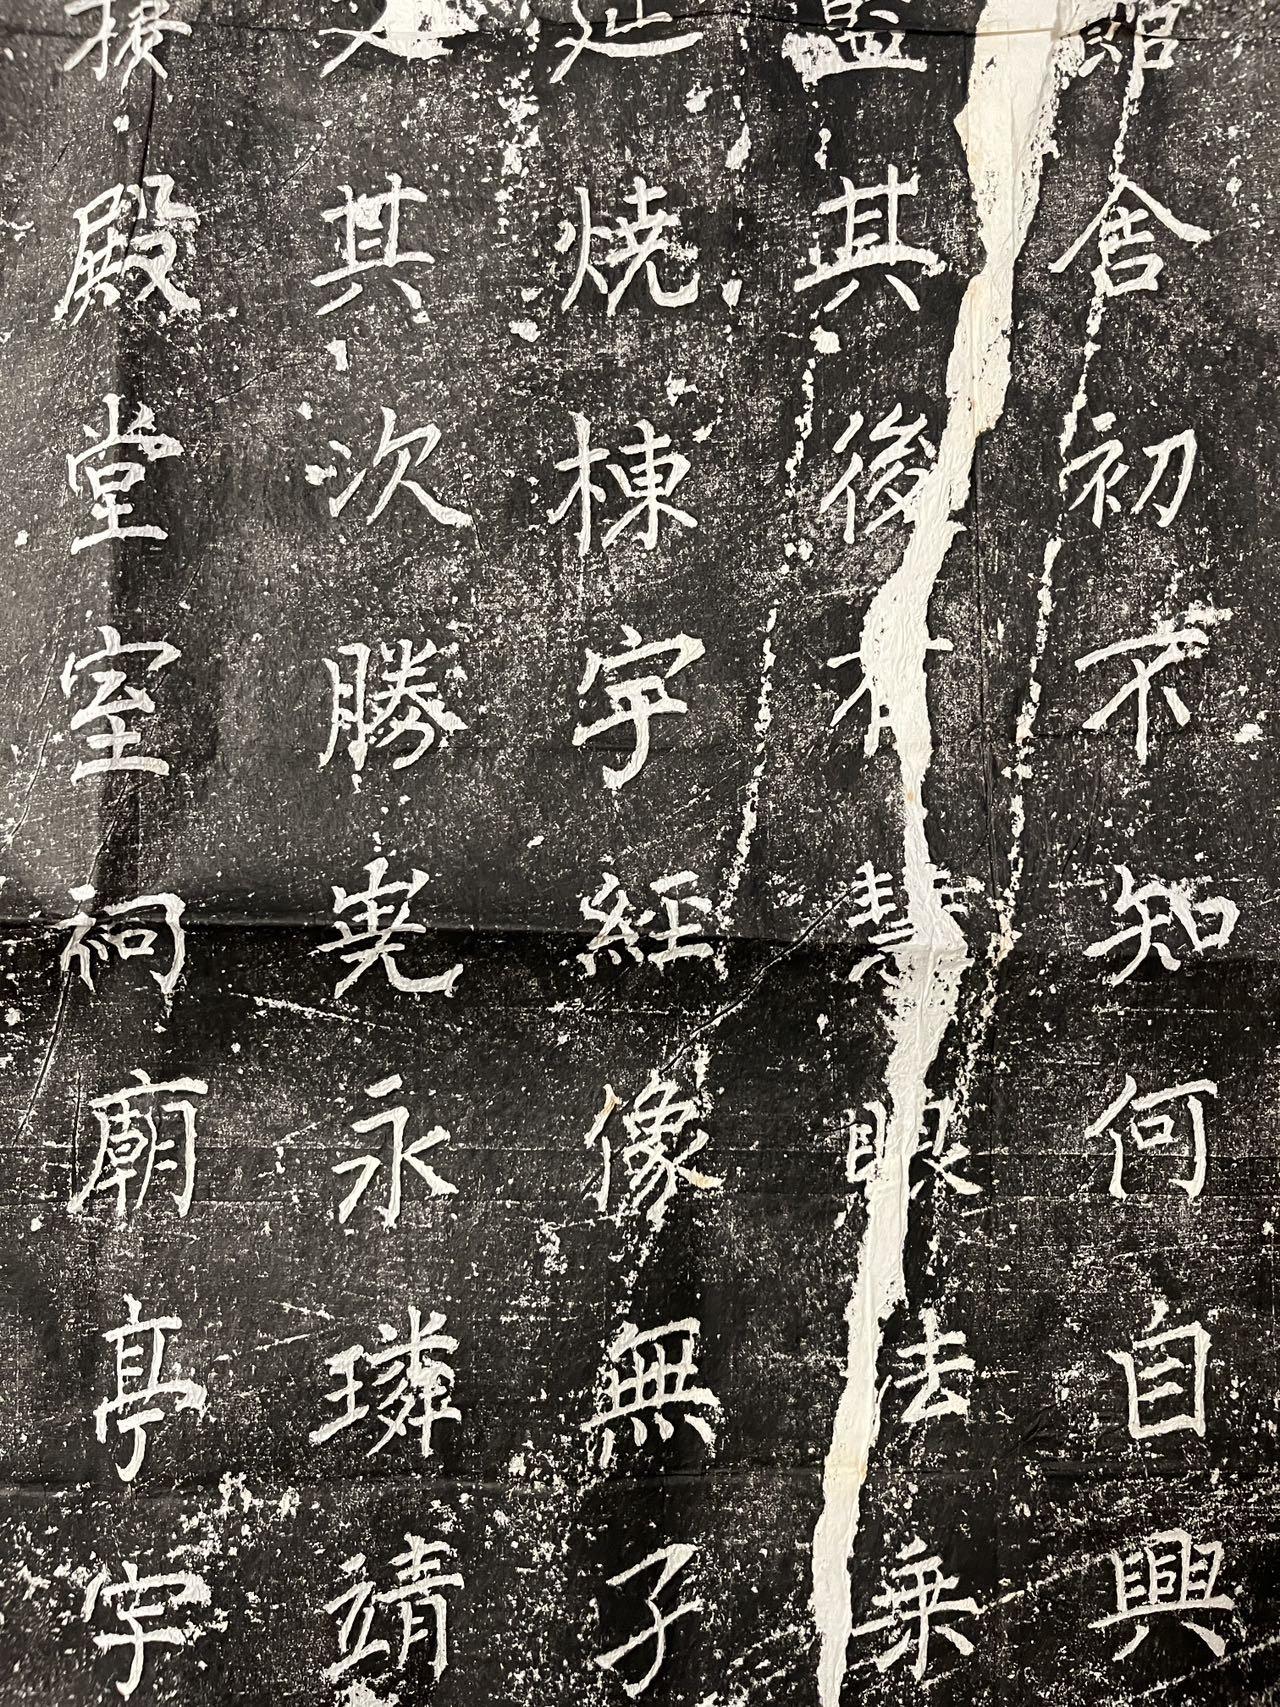 舍初不知何自興
其後有慧眼法乗
燒棟宇經像無孑
其次勝堯永璘靖
殿堂室祠廟亭宇